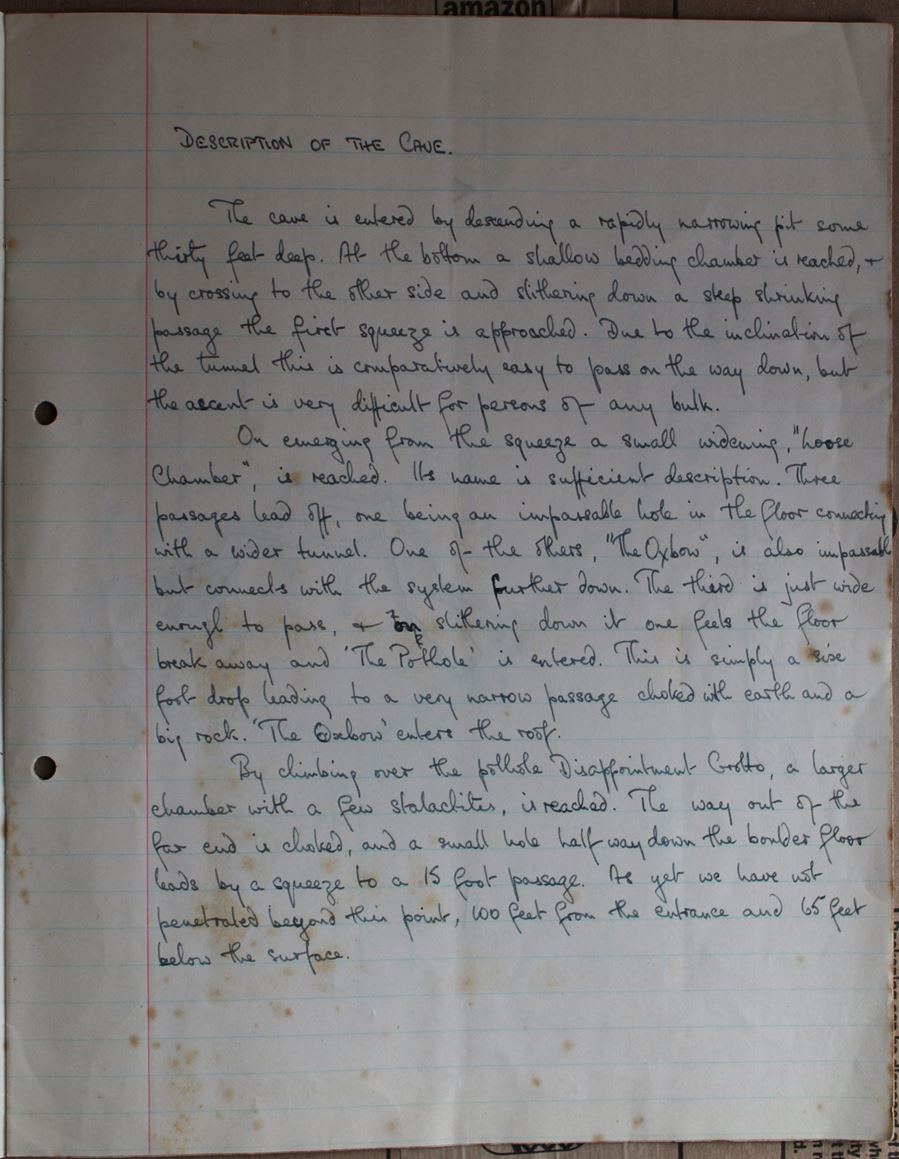 amazon
DESCRIPTION OF THE CAVE.
The cave is entered by descending a rapidly narrowing pit some
thirty feet deep. At the bottom a shallow bedding chamber is reached, +
by crossing to the other side and slithering down a steep shrinking
passage the first squeeze is approached. Due to the inclination of
the tunnel this is comparatively easy to pass on the way down, but
the ascent is very difficult for persons of any bulk.
On emerging from the squeeze a small widening, "Loose
Chamber", is reached. Its name is sufficient description. Three
passages lead off, one being an impassable hole in the floor connecting
with a wider tunnel. One of the others, "The Oxbow", is also impassable
but connects with the system further down. The third is just wide
enough to pass, + on slithering down it one feels the floor
break away and 'The Pothole' is entered. This is simply a six
foot drop leading to a very narrow passage choked with earth and a
big rock. 'The Oxbow' enters the roof.
By climbing over the pothole Disappointment Grotto, a larger
chamber with a few stalactites, is reached. The way out of the
far end is choked, and a small hole half way down the boulder floor
leads by a squeeze to a 15 foot passage. As yet we have not
penetrated beyond this point, 100 feet from the entrance and 65 feet
below the surface.